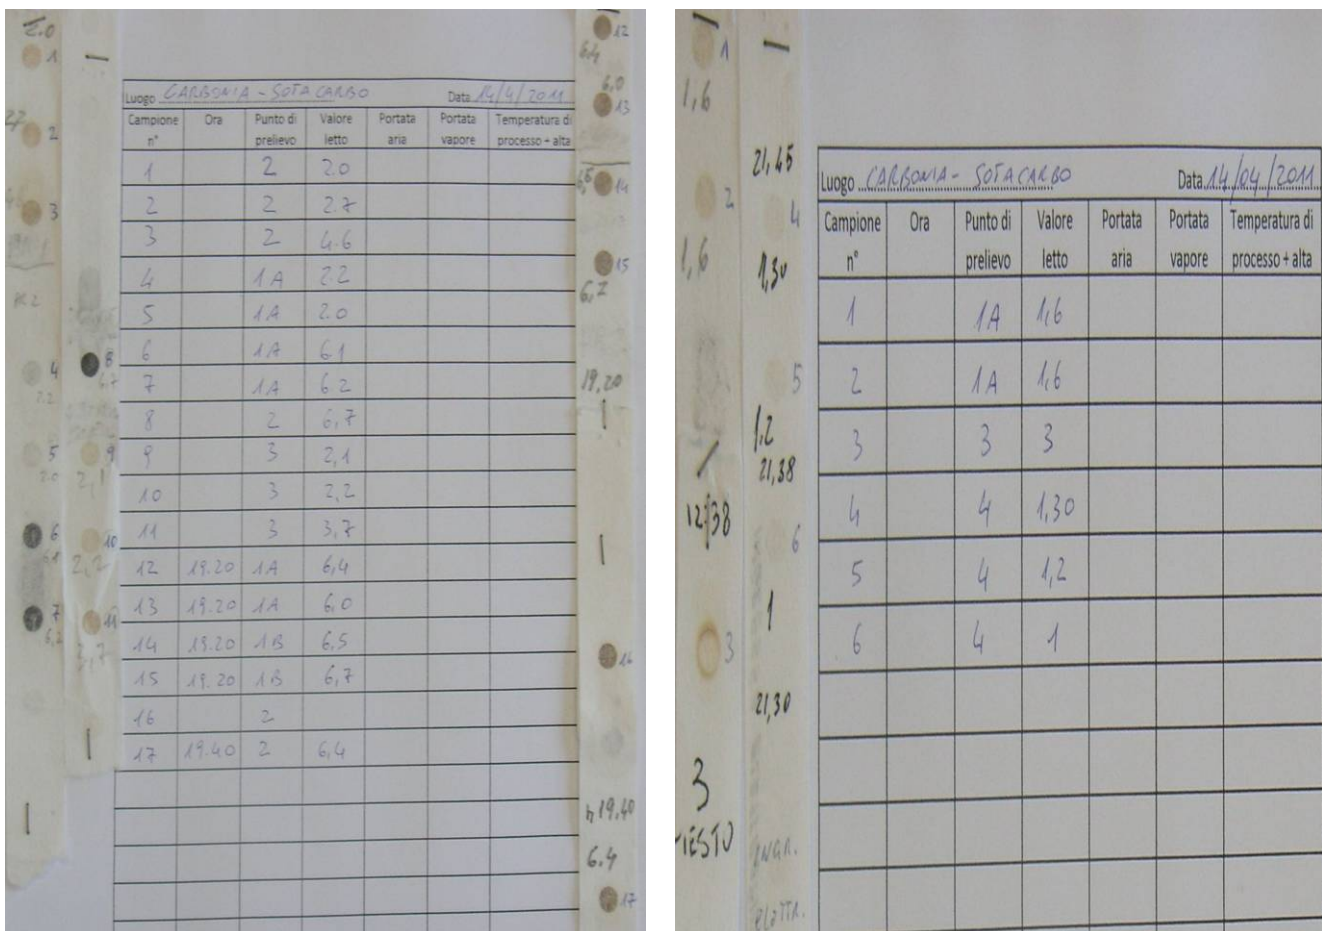 2.0
1
2.7
2
4.6
3
4
2.2
5
2.0
6
6.1
7
6.2
8
6.7
9
2,1
10
2,2
11
3,7
Luogo CARBONIA - SOTACARBO Data 14/4/2011
Campione n° Ora Punto di prelievo Valore letto Portata aria Portata vapore Temperatura di processo + alta
1 2 2.0
2 2 2.7
3 2 4.6
4 1A 2.2
5 1A 2.0
6 1A 6.1
7 1A 6.2
8 2 6,7
9 3 2,1
10 3 2,2
11 3 3,7
12 19.20 1A 6,4
13 19.20 1A 6,0
14 19.20 1B 6,5
15 19.20 1B 6,7
16 2
17 19.40 2 6,4
12
6.4
6,0
13
14
15
6,7
19,20
16
19,40
6.4
17
1
1,6
2
1,6
12,38
3
3
21,45
4
1,30
5
1,2
21,38
6
1
21,30
INGR.
Luogo CARBONIA - SOTACARBO Data 14/04/2011
Campione n° Ora Punto di prelievo Valore letto Portata aria Portata vapore Temperatura di processo + alta
1 1A 1,6
2 1A 1,6
3 3 3
4 4 1,30
5 4 1,2
6 4 1